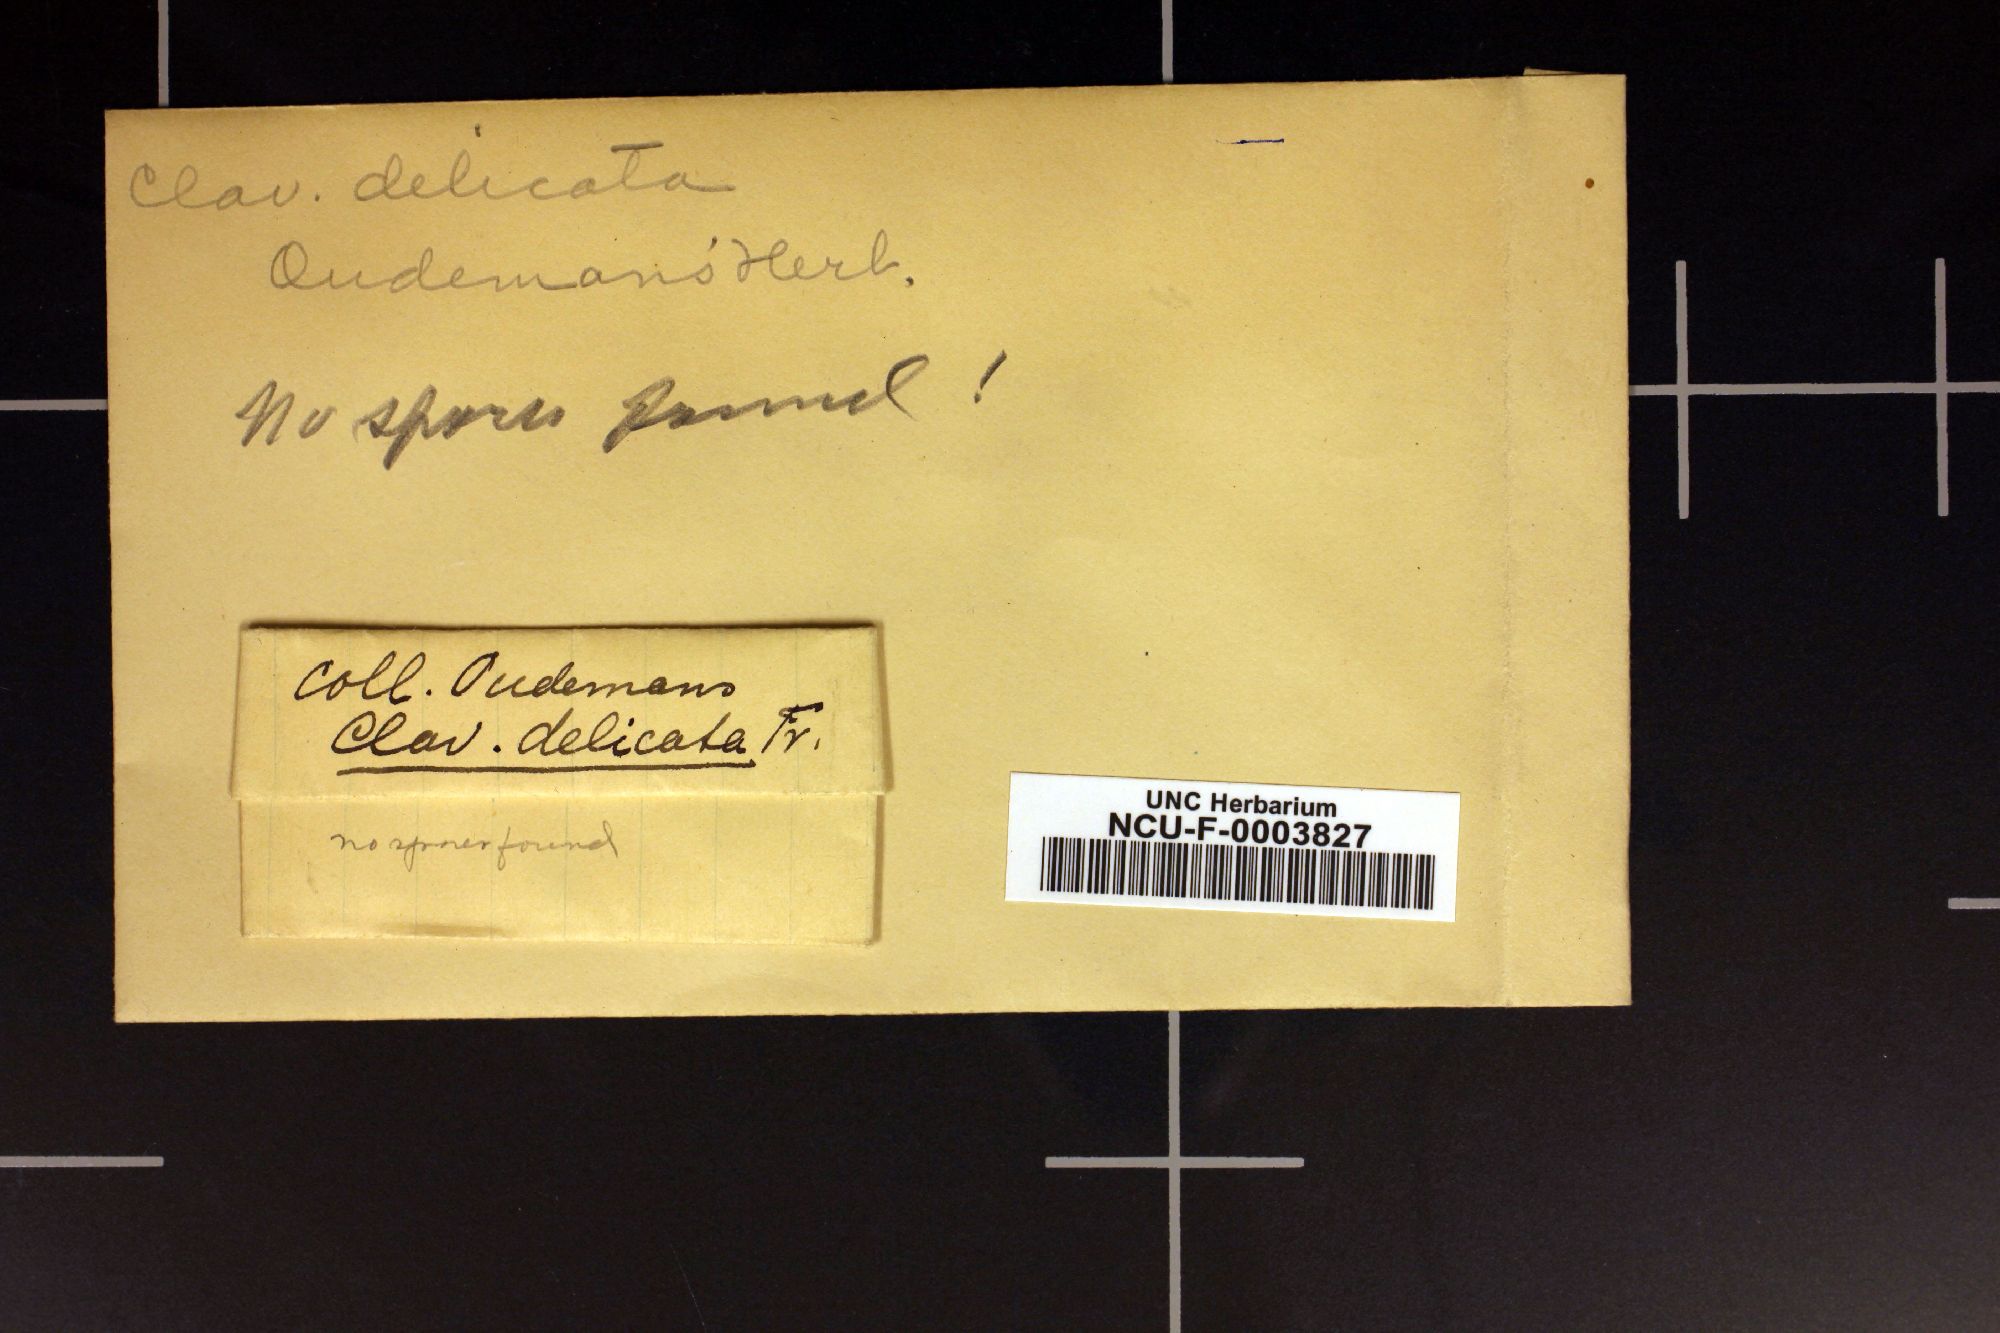 Clav. delicata
Oudemans' Herb.
No spores found!
Coll. Oudemans
Clav. delicata Fr.
no spores found
UNC Herbarium
NCU-F-0003827